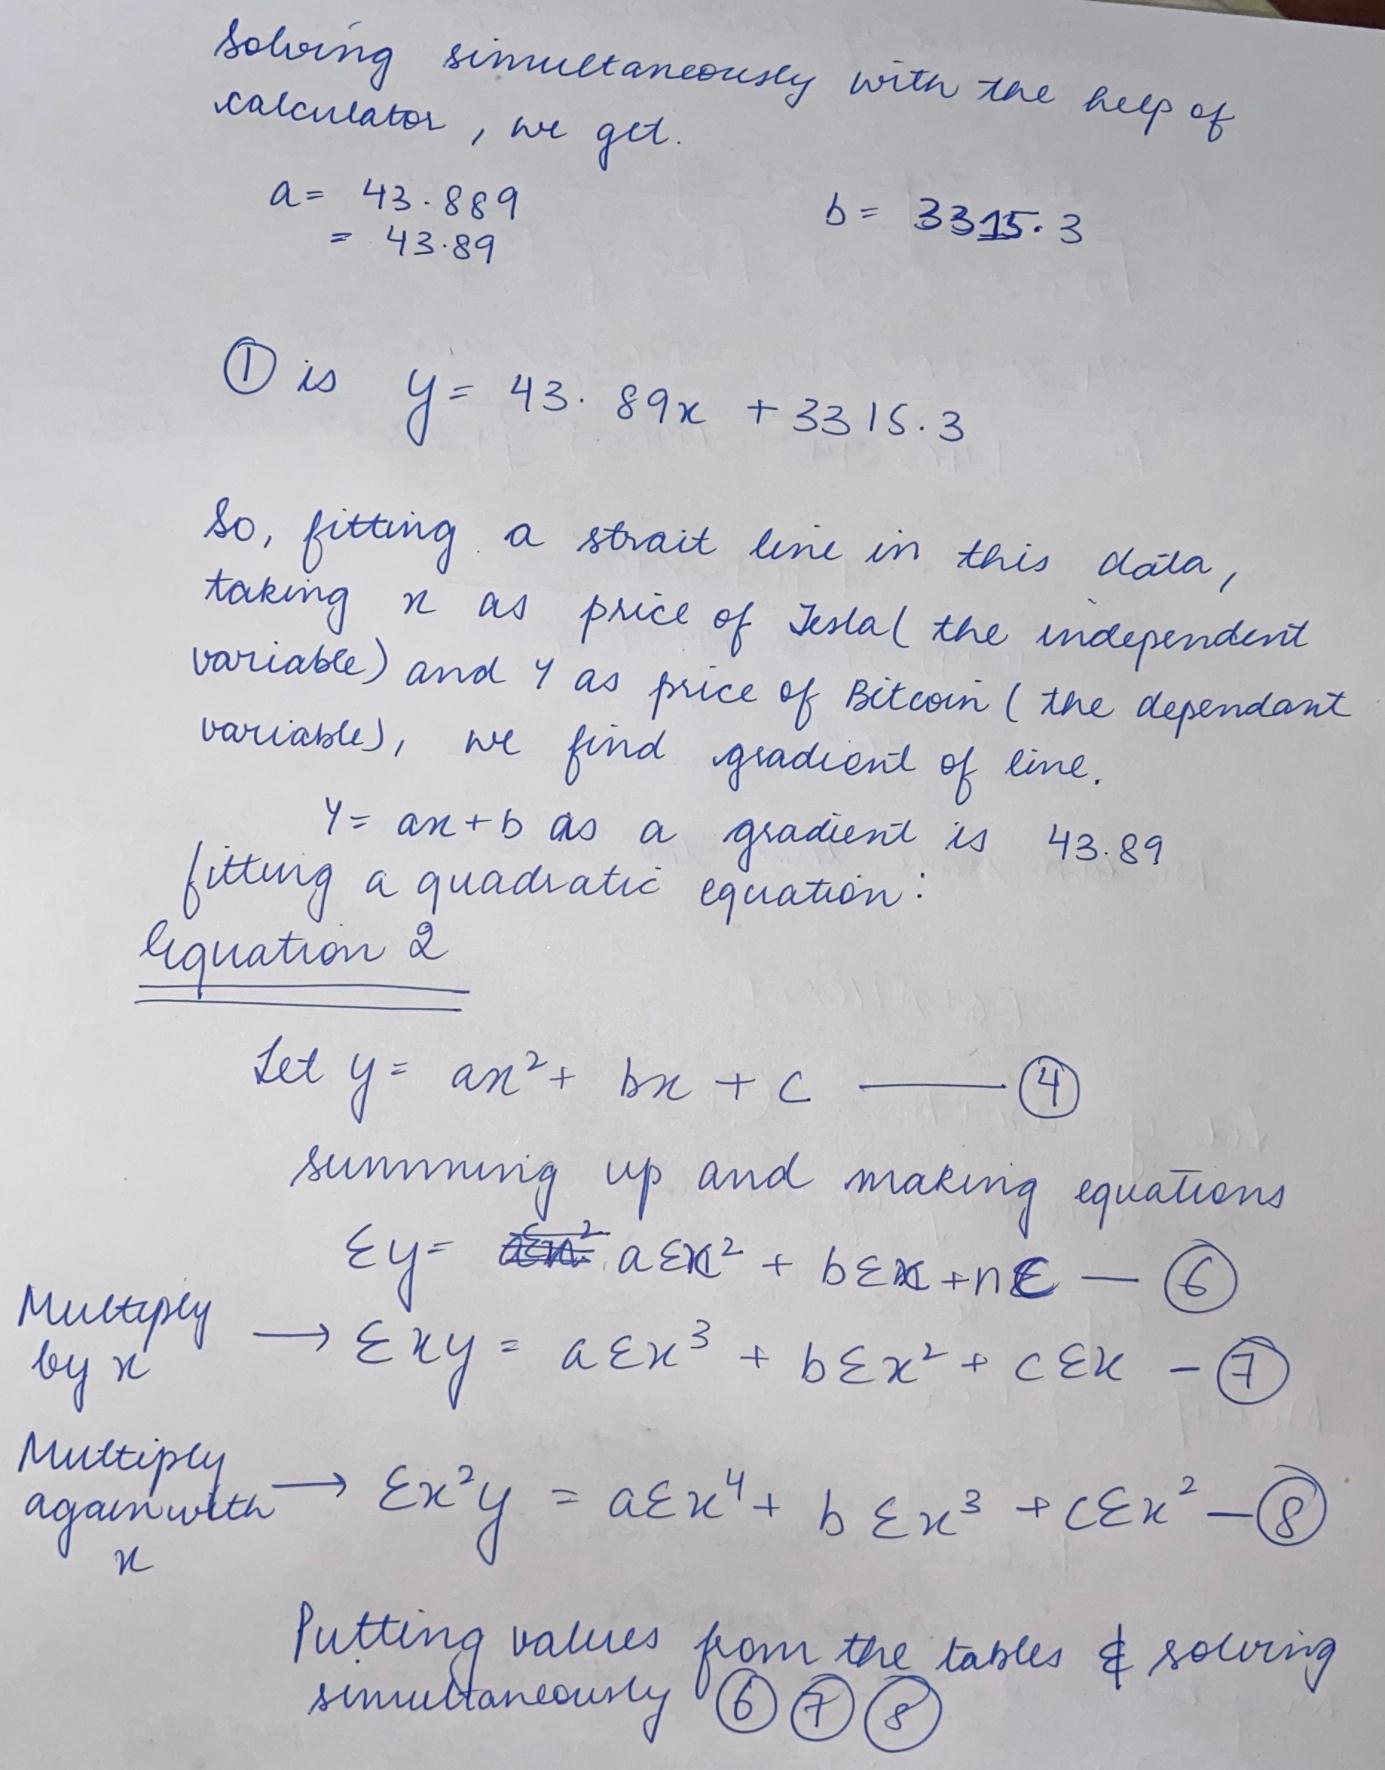 Solving simultaneously with the help of
calculator, we get.
a = 43.889
= 43.89
b = 3315.3
① is y = 43.89x + 3315.3
So, fitting a strait line in this data,
taking x as price of Tesla ( the independent
variable) and y as price of Bitcoin ( the dependant
variable), we find gradient of line.
Y = ax+b as a gradient is 43.89
fitting a quadratic equation:
Equation 2
Let y = ax² + bx + c — ④
summing up and making equations
Σy = aΣx² + bΣx + nc — ⑥
Multiply
by x
→ Σxy = aΣx³ + bΣx² + cΣx - ⑦
Multiply
again with
x
→ Σx²y = aΣx⁴ + bΣx³ + cΣx² - ⑧
Putting values from the tables & solving
simultaneously ⑥ ⑦ ⑧